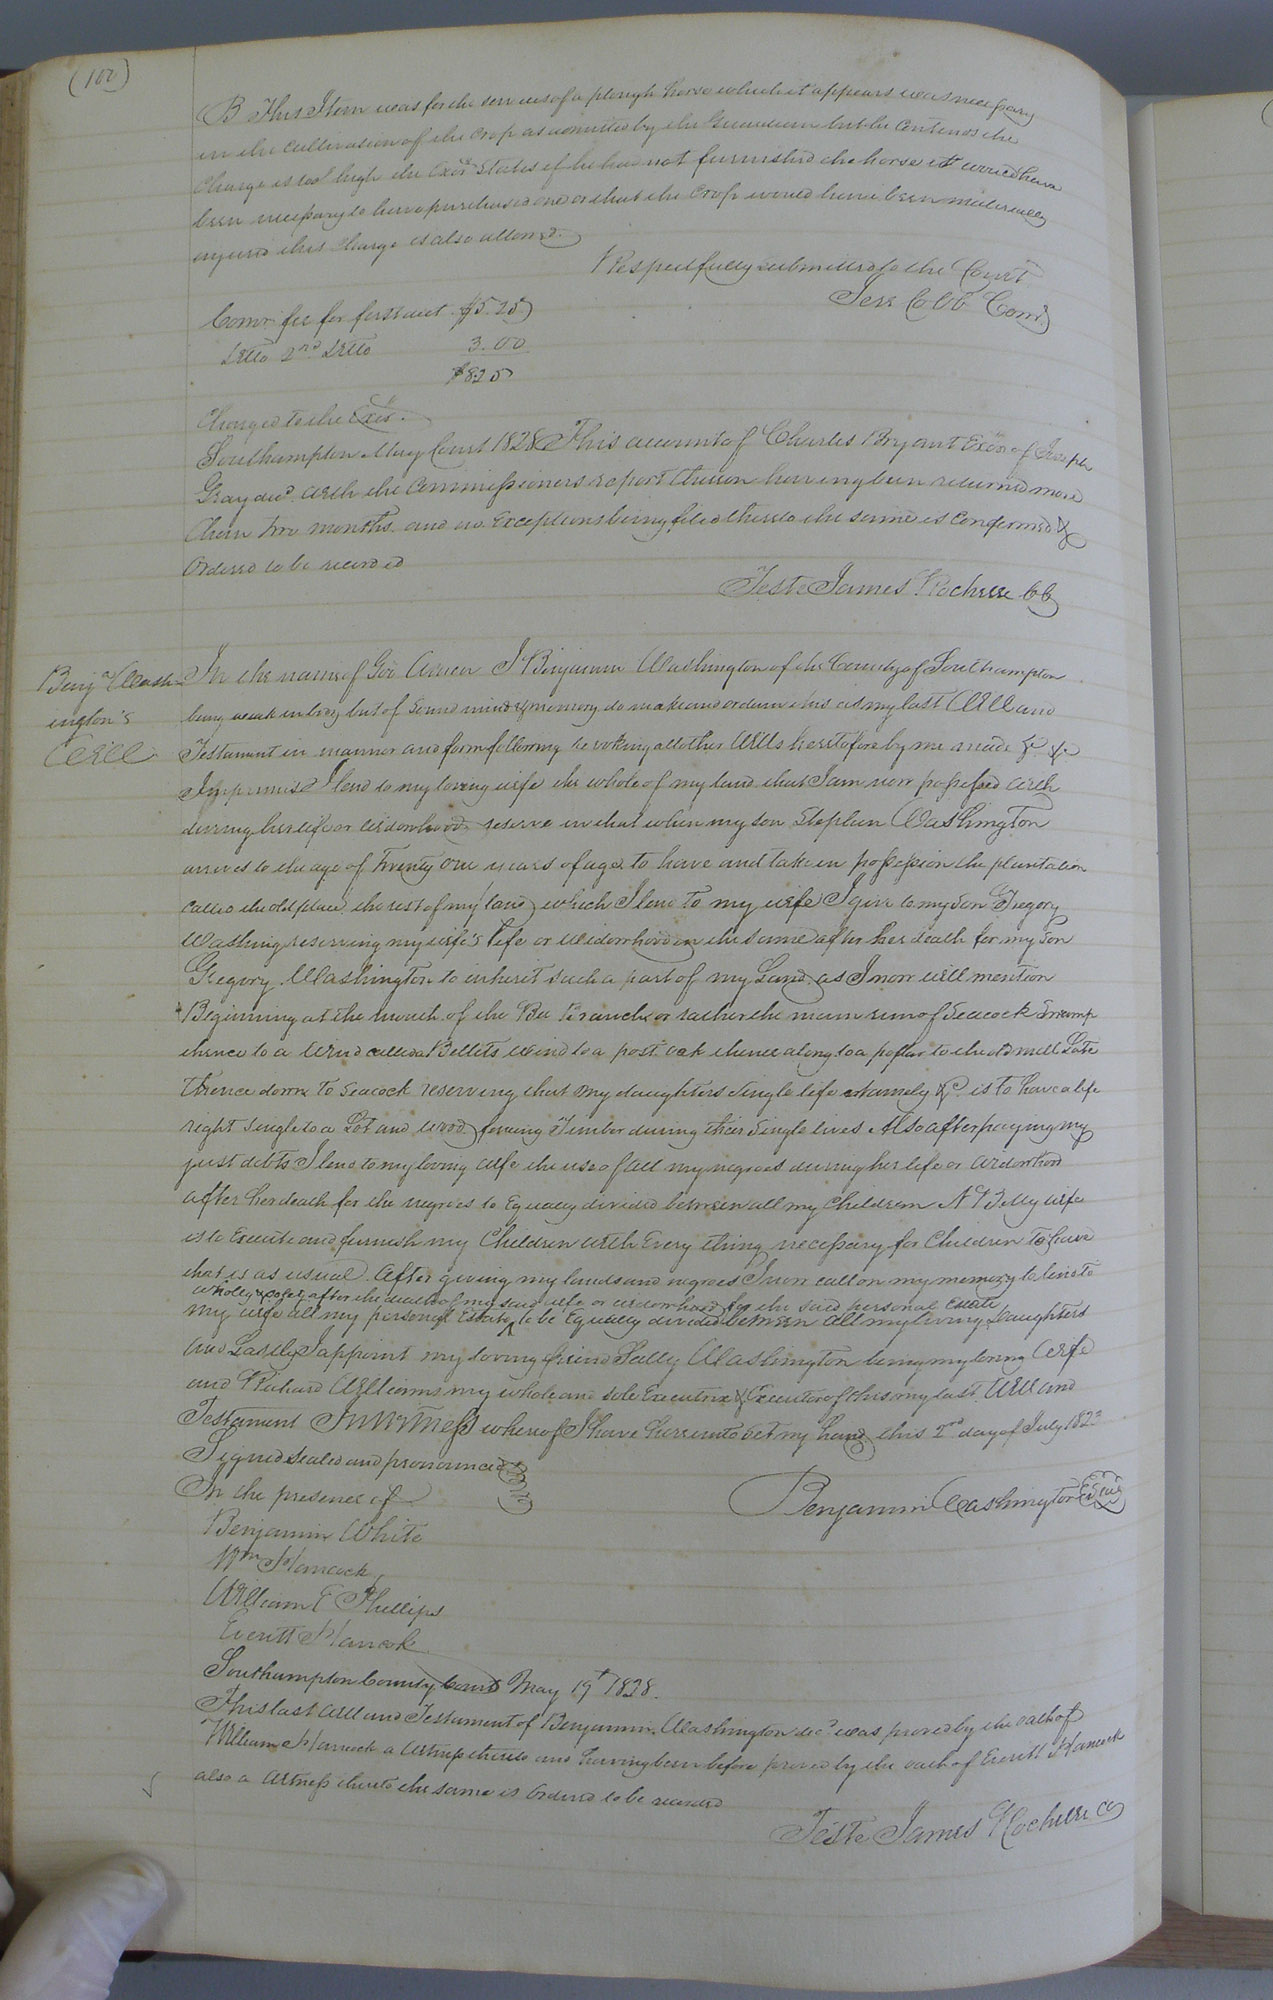 (102)
B This Item was for the services of a plough horse which it appears was necessary
in the cultivation of the crop as admitted by the Guardian but he contends the
charge is too high the Exor. States if he had not furnished the horse it would have
been necessary to have purchased one or that the crop would have been materially
injured this charge is also allowed.
Respectfully submitted to the Court
Jere Cobb Comr.
Comr. fee for first act $5.25
Ditto 2nd Ditto 3.00
$8.25
Charged to the Exor.
Southampton May Court 1828 This account of Charles Bryant Exor of Joseph
Gray decd. with the Commissioners report thereon having been returned more
than two months and no Exceptions being filed thereto the same is Confirmed &
Ordered to be recorded
Teste James Rochelle CC
Benja Wash
ington's
Will
In the name of God Amen I Benjamin Washington of the County of Southampton
being weak in body but of sound mind & memory do make and ordain this as my last Will and
Testament in manner and form following revoking all other Wills heretofore by me made &c &c
Imprimis I lend to my loving wife the whole of my land that I am now possessed with
during her life or widowhood reserve in that when my son Stephen Washington
arrives to the age of Twenty One years of age to have and take in possession the plantation
called the old place, the rest of my land which I lend to my wife I give to my Son Gregory
Washing reserving my wife's life or widowhood in the same after her death for my son
Gregory Washington to inherit such a part of my Land as I now will mention
Beginning at the mouth of the Bee Branch or rather the main run of Seacock Swamp
thence to a Wind called Bellets wind to a post oak thence along to a poplar to the old mill Lote
thence down to Seacock reserving that my daughters single life namely &c is to have a life
right single to a Lot and wood fencing Timber during their single lives Also after paying my
just debts I lend to my loving wife the use of all my negroes during her life or widowhood
after her death for the negroes to Equally divided between all my children N B my wife
is to Execute and furnish my Children with Every thing necessary for Children to have
that is as usual. After giving my lands and negroes I now call on my memory to lend to
wholly after the death of my said wife or widowhood for the said personal Estate
my wife all my personal Estate ^ to be Equally divided between all my living Daughters
And Lastly I appoint my loving friend Sally Washington being my loving Wife
and Richard Williams my whole and sole Executrix & Executor of this my last Will and
Testament In Witness whereof I have hereunto set my hand this 2nd day of July 1823
Signed sealed and pronounced
In the presence of
Benjamin Washington {Seal}
Benjamin White
Wm Hancock
William E Phillips
Everitt Hancock
Southampton County Court May 19th 1828.
This last Will and Testament of Benjamin Washington decd. was proved by the oath of
William Hancock a witness thereto and having been before proved by the oath of Everitt Hancock
also a witness thereto the same is Ordered to be recorded
Teste James Rochelle CC